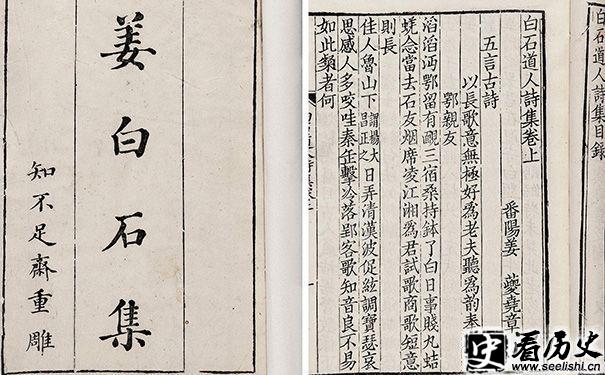 姜白石集
知不足齋重雕
白石道人詩集目錄
白石道人詩集卷上
番陽姜 夔堯章
五言古詩
以長歌意無極好為老夫聽為韵奉
鄂親友
滔滔沔鄂留有靦三宿桑持鉢了白日事賤丸蛣
蜣念當去石友烟席凌江湘為君試歌商歌短意
則長
佳人魯山下謂楊大昌正之日弄清漢波促絃調寶瑟哀
思感人多咬哇秦缶擊冷落郢客歌知音良不易
如此類者何
史 看历史
www.seelishi.cn